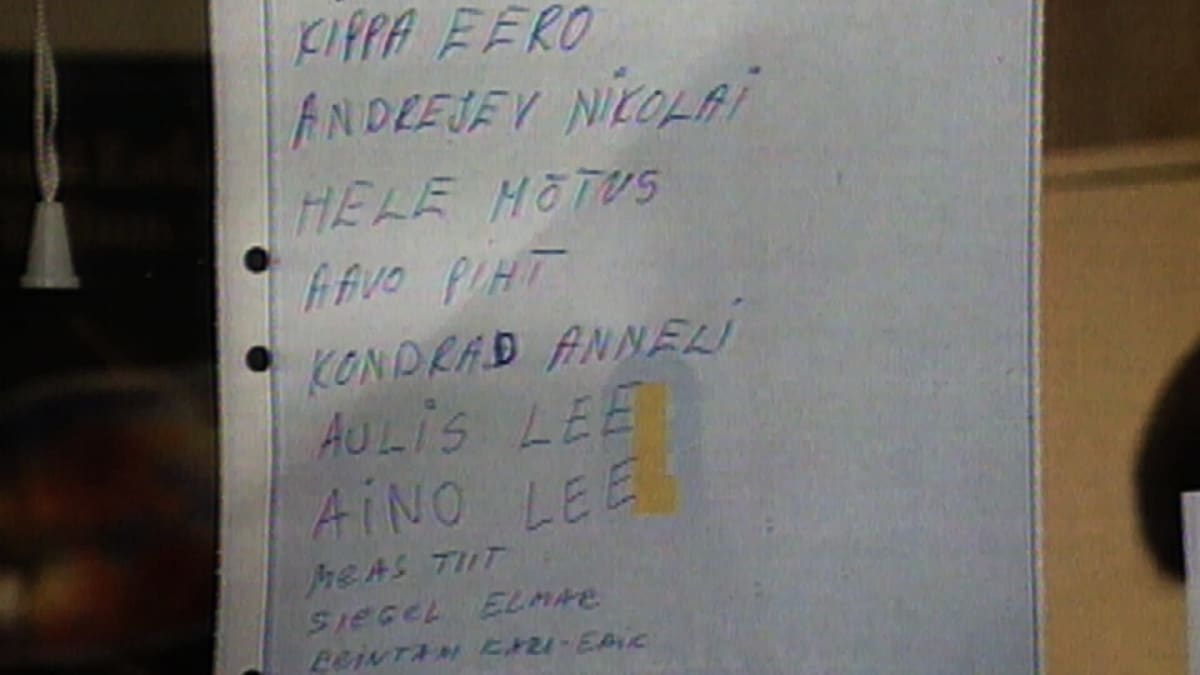 KIPPA EERO
ANDREJEV NIKOLAI
HELE MÕTUS
AAVO PIHT
KONDRAD ANNELI
AULIS LEE
AINO LEE
MEAS TIIT
SIEGEL ELMAR
KARL-ERIK